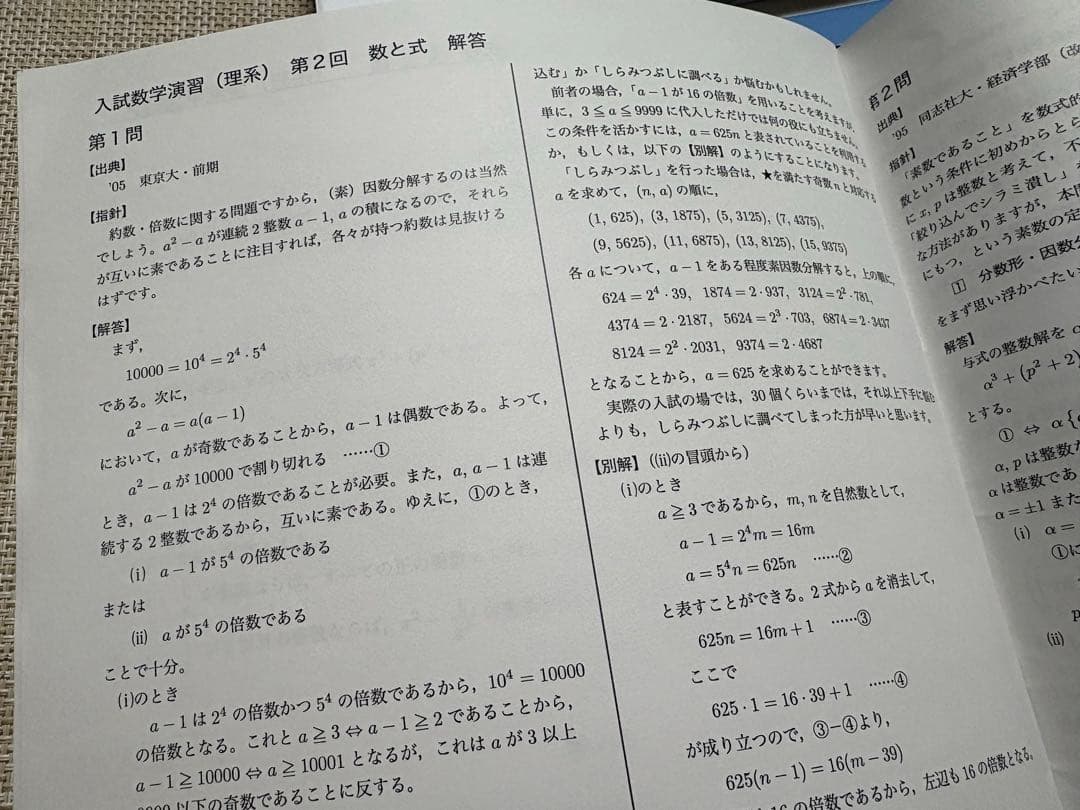 入試数学演習（理系） 第２回 数と式 解答
第１問
【出典】
'05 東京大・前期
【指針】
約数・倍数に関する問題ですから，（素）因数分解するのは当然
でしょう。a²－a が連続２整数 a－1, a の積になるので，それら
が互いに素であることに注目すれば，各々が持つ約数は見抜ける
はずです。
【解答】
まず，
10000＝10⁴＝2⁴・5⁴
である。次に，
a²－a＝a(a－1)
において，a が奇数であることから，a－1 は偶数である。よって，
a²－a が 10000 で割り切れる ……①
とき，a－1 は 2⁴ の倍数であることが必要。また，a, a－1 は連
続する２整数であるから，互いに素である。ゆえに，①のとき，
(i) a－1 が 5⁴ の倍数である
または
(ii) a が 5⁴ の倍数である
ことで十分。
(i)のとき
a－1 は 2⁴ の倍数かつ 5⁴ の倍数であるから，10⁴＝10000
の倍数となる。これと a≧3⇔a－1≧2 であることから，
a－1≧10000⇔a≧10001 となるが，これは a が 3 以上
以下の奇数であることに反する。
込む」か「しらみつぶしに調べる」か悩むかもしれません。
前者の場合，「a－1 が 16 の倍数」を用いることを考えますが，
単に，3≦a≦9999 に代入しただけでは何の役にも立ちません。
この条件を活かすには，a＝625n と表されていることを利用する
か，もしくは，以下の【別解】のようにすることになります。
「しらみつぶし」を行った場合は，★を満たす奇数 n と対応する
a を求めて，(n, a) の順に，
(1, 625), (3, 1875), (5, 3125), (7, 4375),
(9, 5625), (11, 6875), (13, 8125), (15, 9375)
各 a について，a－1 をある程度素因数分解すると，上の順に，
624＝2⁴・39, 1874＝2・937, 3124＝2²・781,
4374＝2・2187, 5624＝2³・703, 6874＝2・3437
8124＝2²・2031, 9374＝2・4687
となることから，a＝625 を求めることができます。
実際の入試の場では，30 個くらいまでは，それ以上下手に
よりも，しらみつぶしに調べてしまった方が早いと思います。
【別解】((ii)の冒頭から)
(i)のとき
a≧3 であるから，m, n を自然数として，
a－1＝2⁴m＝16m
a＝5⁴n＝625n ……②
と表すことができる。２式から a を消去して，
625n＝16m＋1 ……③
ここで
625・1＝16・39＋1 ……④
が成り立つので，③－④より，
625(n－1)＝16(m－39)
16 の倍数であるから，左辺も 16 の倍数となる。
第２問
出典】
'95 同志社大・経済学部（改
指針】
「素数であること」を数式的
数という条件に初めからとら
に x, p は整数と考えて，不
「絞り込んでシラミ潰し」
な方法がありますが，本問
にもつ，という素数の定
① 分数形・因数分
をまず思い浮かべたい
解答】
与式の整数解を α
α³＋(p²＋2)
とする。
① ⇔ α{
α, p は整数
α は整数であ
α＝±1 また
(i) α＝
①に
(ii)